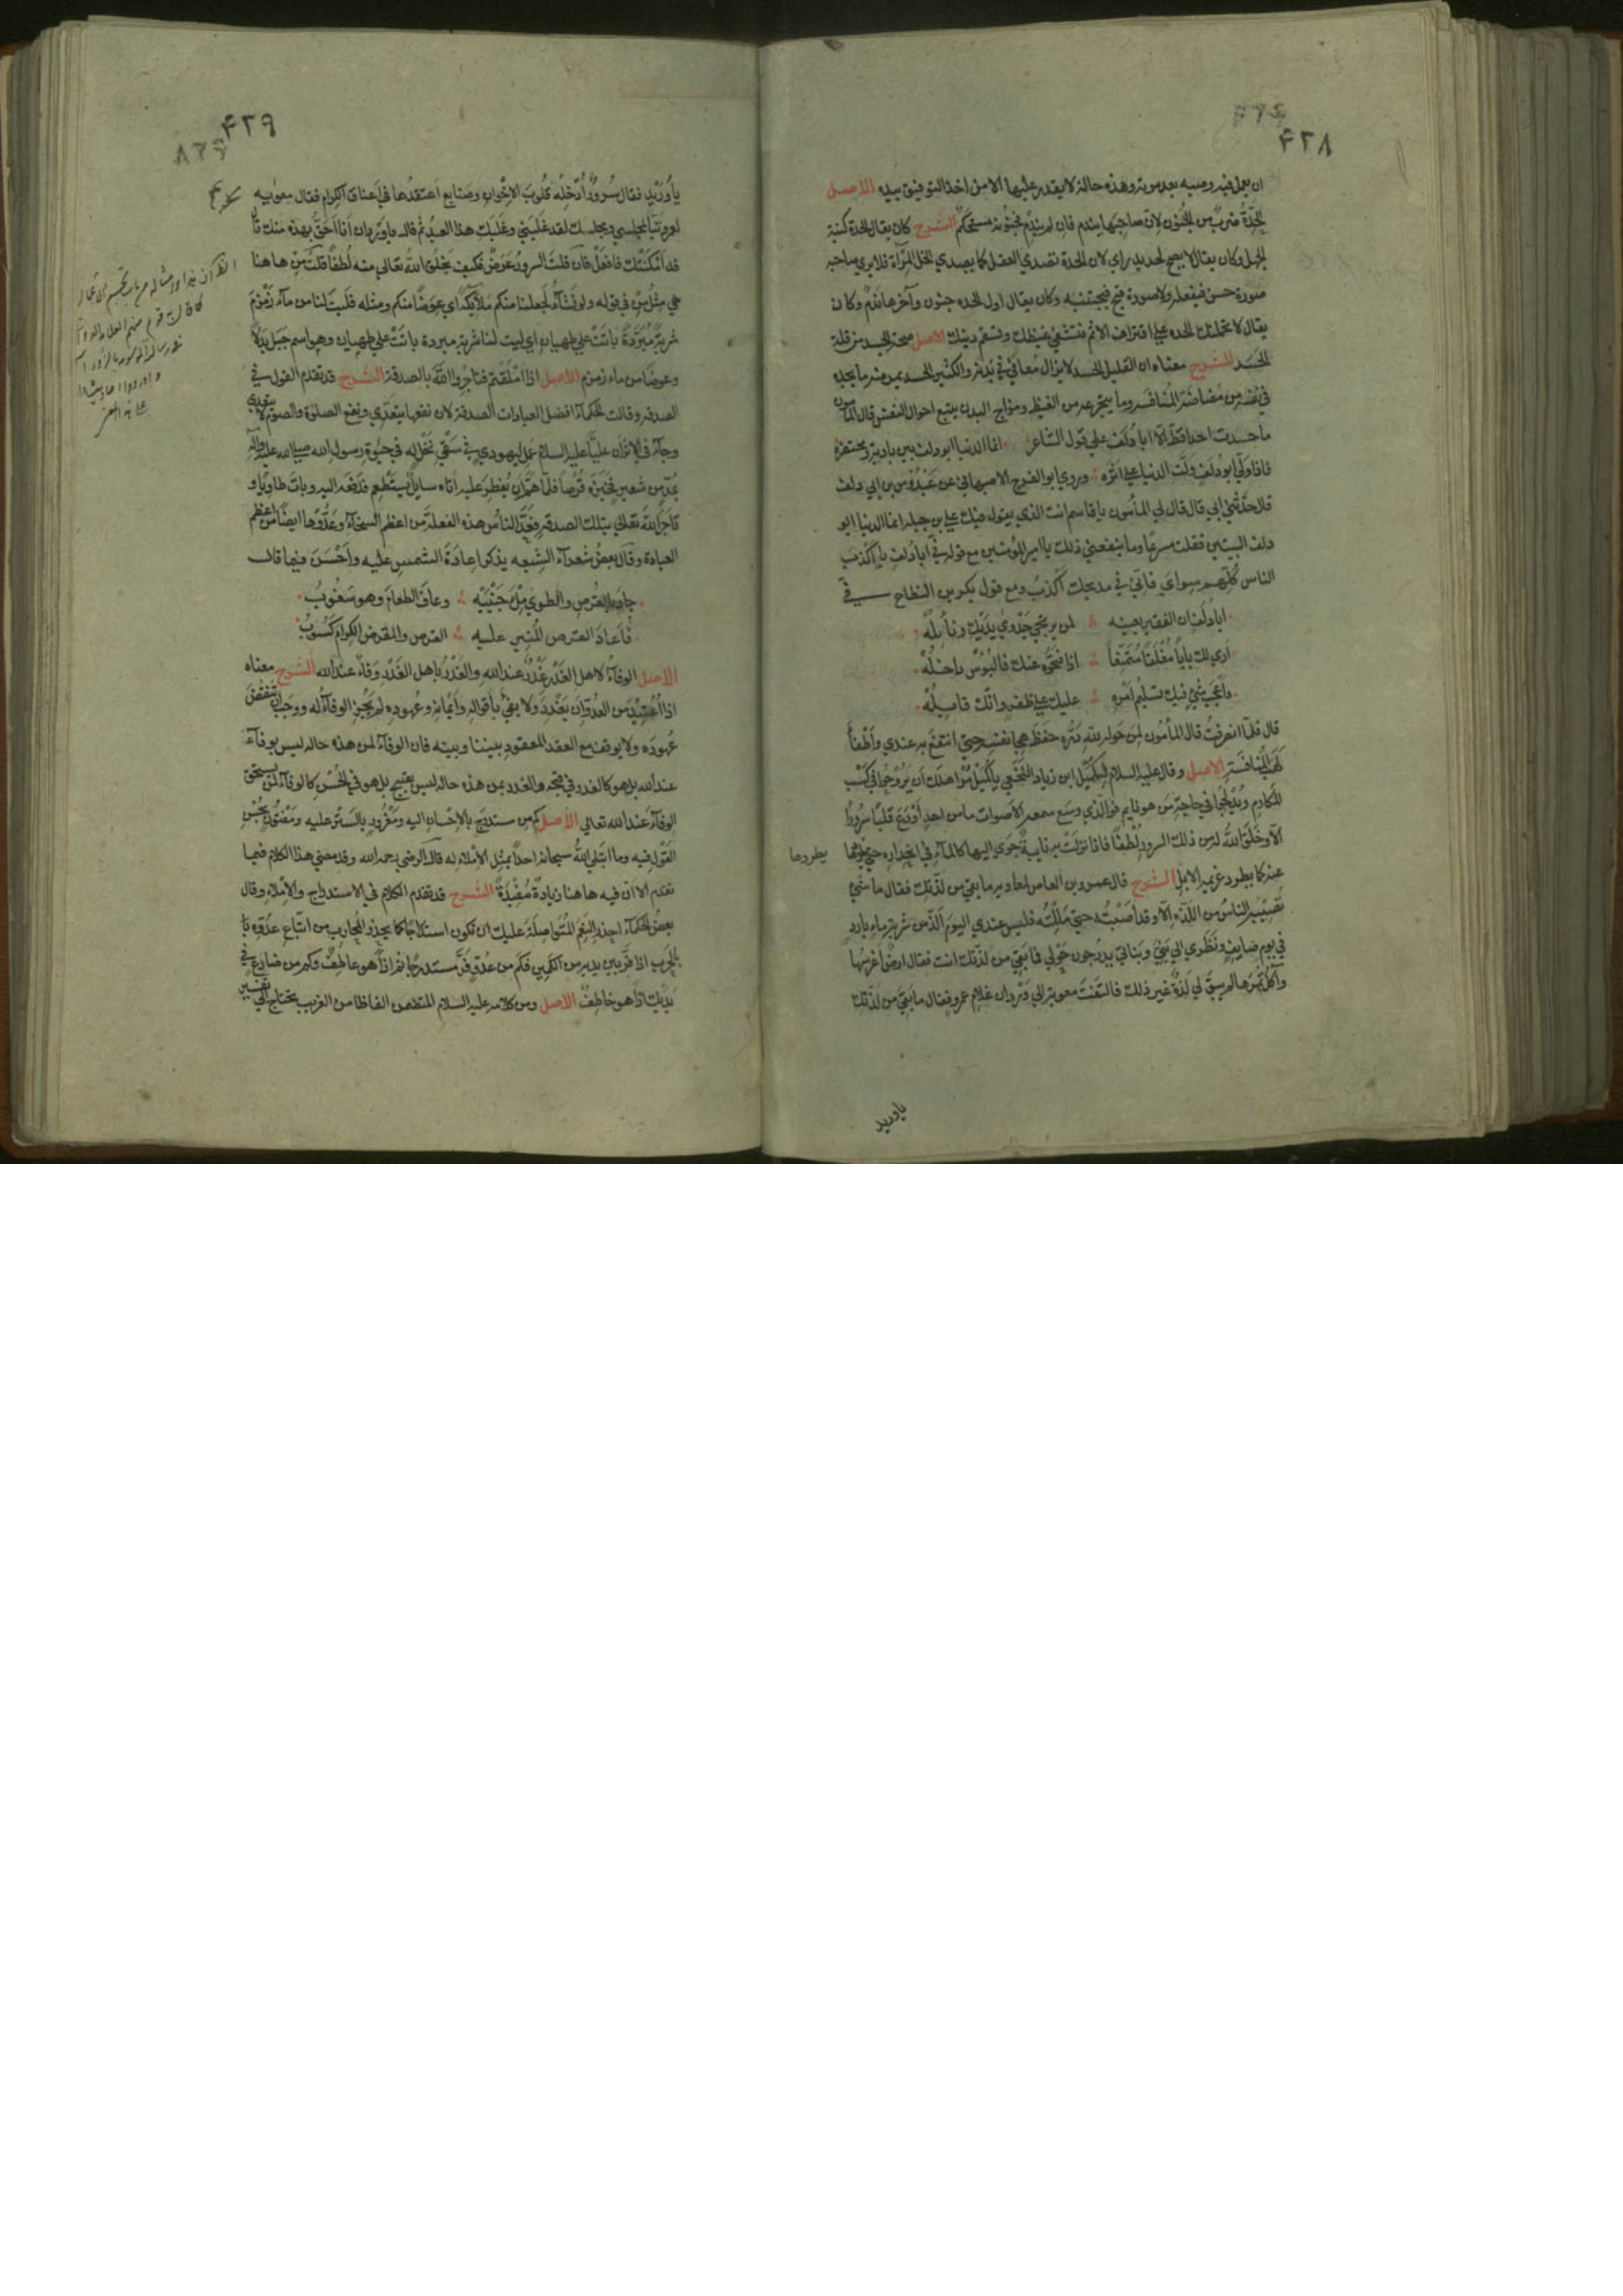 ۴۲۸
ان يعمل فيه وصيه بعد موته وهذه حالة لا يقدر عليها الا من اخذ التوفيق بيده الاصل
الحِدّةُ ضربٌ من الجُنُون لانّ صاحِبَها يندم فان لم يَنْدَم فجُنُونُه مستحكم الشرح كان يقال الحدة كنية
الجهل وكان يقال لا يصح لحديد راي لان الحدة تصدي العقل كما يصدي الخل المرآة فلا يري صاحبه
صورة حسن فيفعله ولا صورة قبح فيجتنبه وكان يقال اول الحدة جنون وآخرها ندم وكان
يقال لا تحملنك الحدة علي اقتراف الاثم فتشفي غيظك وتسقم دينك الاصل صحة الجسد من قلة
الحَسَد الشرح معناه ان القليل الحسد لا يزال معافيً في بدنه والكثير الحسد يمرضه ما يجده
في نفسه من مضاضة المنافسه وما يتجرعه من الغيظ ومزاج البدن يتبع احوال النفس قال المأمون
ما حسدت احدا قط الّا ابا دُلَف علي قول الشاعر انما الدنيا ابو دلف بين باديه ومحتضره
فاذا ولّي ابو دُلَف ولّت الدنيا علي اثره وروي ابو الفرج الاصبهاني عن عَبْدُوس بن ابي دلف
قال حدّثني ابي قال قال لي المأمون يا قاسم انت الذي يقول فيك علي بن جبله انما الدنيا ابو
دلف البيتين فقلت مسرعًا وما ينفعني ذلك يا امير المؤمنين مع قوله فيّ ابا دُلف يا اكْذبَ
الناس كُلّهم سِوايَ فانّي في مديحك اَكْذبُ ومع قول بكر بن النطاح فيّ
ابا دُلَف ان الفقير بعينه لمن يرتجي جَدْوَي يدَيْك ونأملُهْ
اَرَي لك باباً مُغْلَقاً مُتَمَنّعاً اذا فتحوه عنك فالبُؤْسُ داخلُهْ
واَعْجَبُ شيٍ فيك تسليمُ اَمْرِهِ عليك علي ظهرٍ وانّك قابِلُهْ
قال فلمّا انصرفتُ قال المأمون لمن حوله لِلّهِ دَرُّه حَفِظَ هجآ نفسه حتي انتفع به عندي واَطْفأ
لَهَبَ المُنافسة الاصل وقال عليه السلام لكُمَيْل ابن زياد النخعي يا كُمَيْل مُرْ اهلك اَن يَرُوحُوا في كَسْب
المكارم ويُدْلِجُوا في حاجة من هو نايم فوالّذي وَسِعَ سمعه الاصوات ما من احدٍ اَوْدَعَ قلبًا سُرُورًا
الّا وخَلَقَ اللهُ له من ذلك السرور لُطْفًا فاذا نزلَتْ به نايبةٌ جَرَي اليها كالمآء في انحداره حتي يطردها
يطردها
عنه كما يطرد غريبه الابل الشرح قال عمرو بن العاص لمعاويه ما بقي من لذّتك فقال ما شئ
يُصيبُه الناسُ من اللّذه الّا وقد اَصَبْتُه حتي مَلِلْتُه فليس عندي اليومَ اَلَذّ من شربة ماء بارد
في يوم صايف ونَظَري الي بَنِيَّ وبَناتي يدرجون حَوْلي فما بَقِيَ من لذّتك انت فقال ارضٌ اَغرسُها
وآكُل ثمرَها لم يبق لي لذّةٌ غير ذلك فالتفتَ معويه الي وَرْدان غلام عمرو فقال ما بَقِيَ من لذّتك
ياوريد
۴۲۹
يا وُرَيْد فقال سُرورٌ اُدْخِلُه قلُوبَ الاِخْوان وصنايع اَعتقدُها في اَعناق الكِرام فقال معويه
لعمرو تبّاً لمجلسي ومجلسك لقد غَلَبَني وغَلَبَك هذا العبدُ ثم قال يا وَرْدان اَنا اَحقُّ بهذه منك قال
قد اَمْكَنَتْك فافْعَلْ فان قلتَ السرورُ عَرَضٌ فكيف يخلق اللهُ تعالي منه لُطْفًا قلتُ مِن ها هنا
هي مِثْلُ مِنْ في قوله ولو نَشآءُ لجعلنا منكم ملآئكةً اي عِوَضًا منكم ومثله فلَيتَ لنا من مآء زَمْزمَ
شربةً مُبَرَّدةً باتَتْ علي طهيان اي ليت لنا شربة مبردة باتَتْ علي طهيان وهو اسم جَبَل بدلًا
وعوضًا من ماء زمزم الاصل اذا اَمْلَقْتم فتاجِرُوا اللهَ بالصدقة الشرح قد تقدم القول في
الصدقه وقالت الحكمآء افضل العبادات الصدقة لان نفعها يتعدّي ونفع الصلوة والصوم لا يتعدي
وجآء في الاثر اَن عليّاً عليه السلام عَمِلَ ليهودي في سَقْي نَخْلٍ له في حيوة رسول الله صلي الله عليه وآله
بمُدّ من شعير فخَبَزه قُرْصًا فلمّا هَمَّ اَن يُفطِرَ عليه اَتاه سايلٌ يستطعم فدَفَعَه اليه وبات طاويًا و
تاجَرَ اللهَ تعالي بتلك الصدقه فعَدَّ الناسُ هذه الفعلةَ من اعظم السخآء وعَدُّوها ايضًا من اعظم
العبادة وقال بعضُ شعرآء الشيعه يذكر اعادَةَ الشمس عليه واَحْسَنَ فيما قال
جاد بالقرص والطوي مِلْءُ جَنْبَيْه وعافَ الطعامَ وهو سَغُوبُ
فأعادَ القرصَ المُنير عليه القرص والمقرض الكرام كَسُوبُ
الاصل الوفآءُ لاهل الغَدْرِ غَدْرٌ عند الله والغَدْرُ باهل الغَدْر وَفآءٌ عند الله الشرح معناه
اذا اعتِيدَ من العدوّ اَن يَغْدِرَ ولا يفيَ بأقواله واَيْمانه وعُهوده لم يَجُز الوفآءُ له ووَجَبَ اَن تُنقَضَ
عُهودُه ولا يوقَف مع العقد المعقود بيننا وبينه فان الوفآءَ لمن هذه حاله ليس بوفآء
عند الله بل هو كالغدر في قبحه والغدر بمن هذه حاله ليس بقبيح بل هو في الحُسْن كالوفآء لمن يستحق
الوفآءَ عند الله تعالي الاصل كم من مستدرَجٍ بالاِحسان اليه ومَغْرُورٍ بالسَّتْر عليه ومَفْتُونٍ بحُسْنِ
القَوْلِ فيه وما ابتلي اللهُ سبحانه احداً بمِثْلِ الاِمْلاءِ له قال الرضي رحمه الله وقد مضي هذا الكلام فيما
تقدم الا ان فيه ها هنا زيادةً مُفيدَةً الشرح قد تقدم الكلام في الاستدراج والاِمْلاءِ وقال
بعضُ الحكمآء احذر النِعَمَ المُتَواصِلَةَ عليك ان تكون استدراجًا كما يحذر المُحارِب من اتّباع عدوّه
في الحَرْب اذا فرَّ بين يديه من الكمين فكَم من عُدوٍّ فَرَّ مستدرجًا ثم اذاً هو عاطِفٌ وكم من ضارع في
يَدَيك اذاً هو خاطِفٌ الاصل ومن كلامه عليه السلام المتضمن الفاظا من الغريب يحتاج الي تفسير